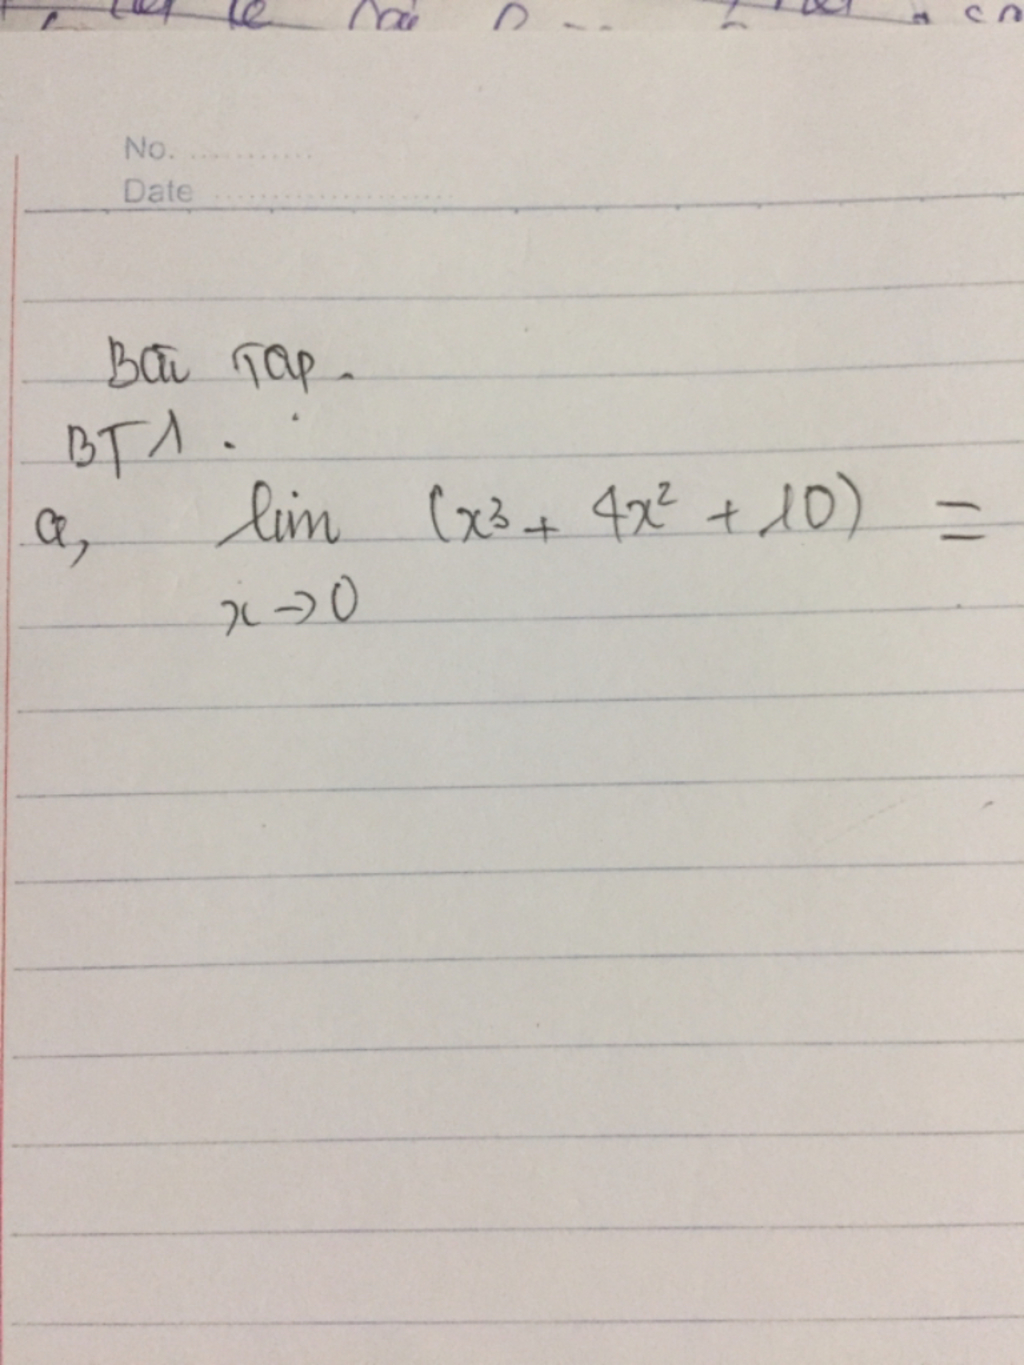 No. ............
Date ......................
Bài Tập.
BT1.
a, lim (x³ + 4x² + 10) =
x→0